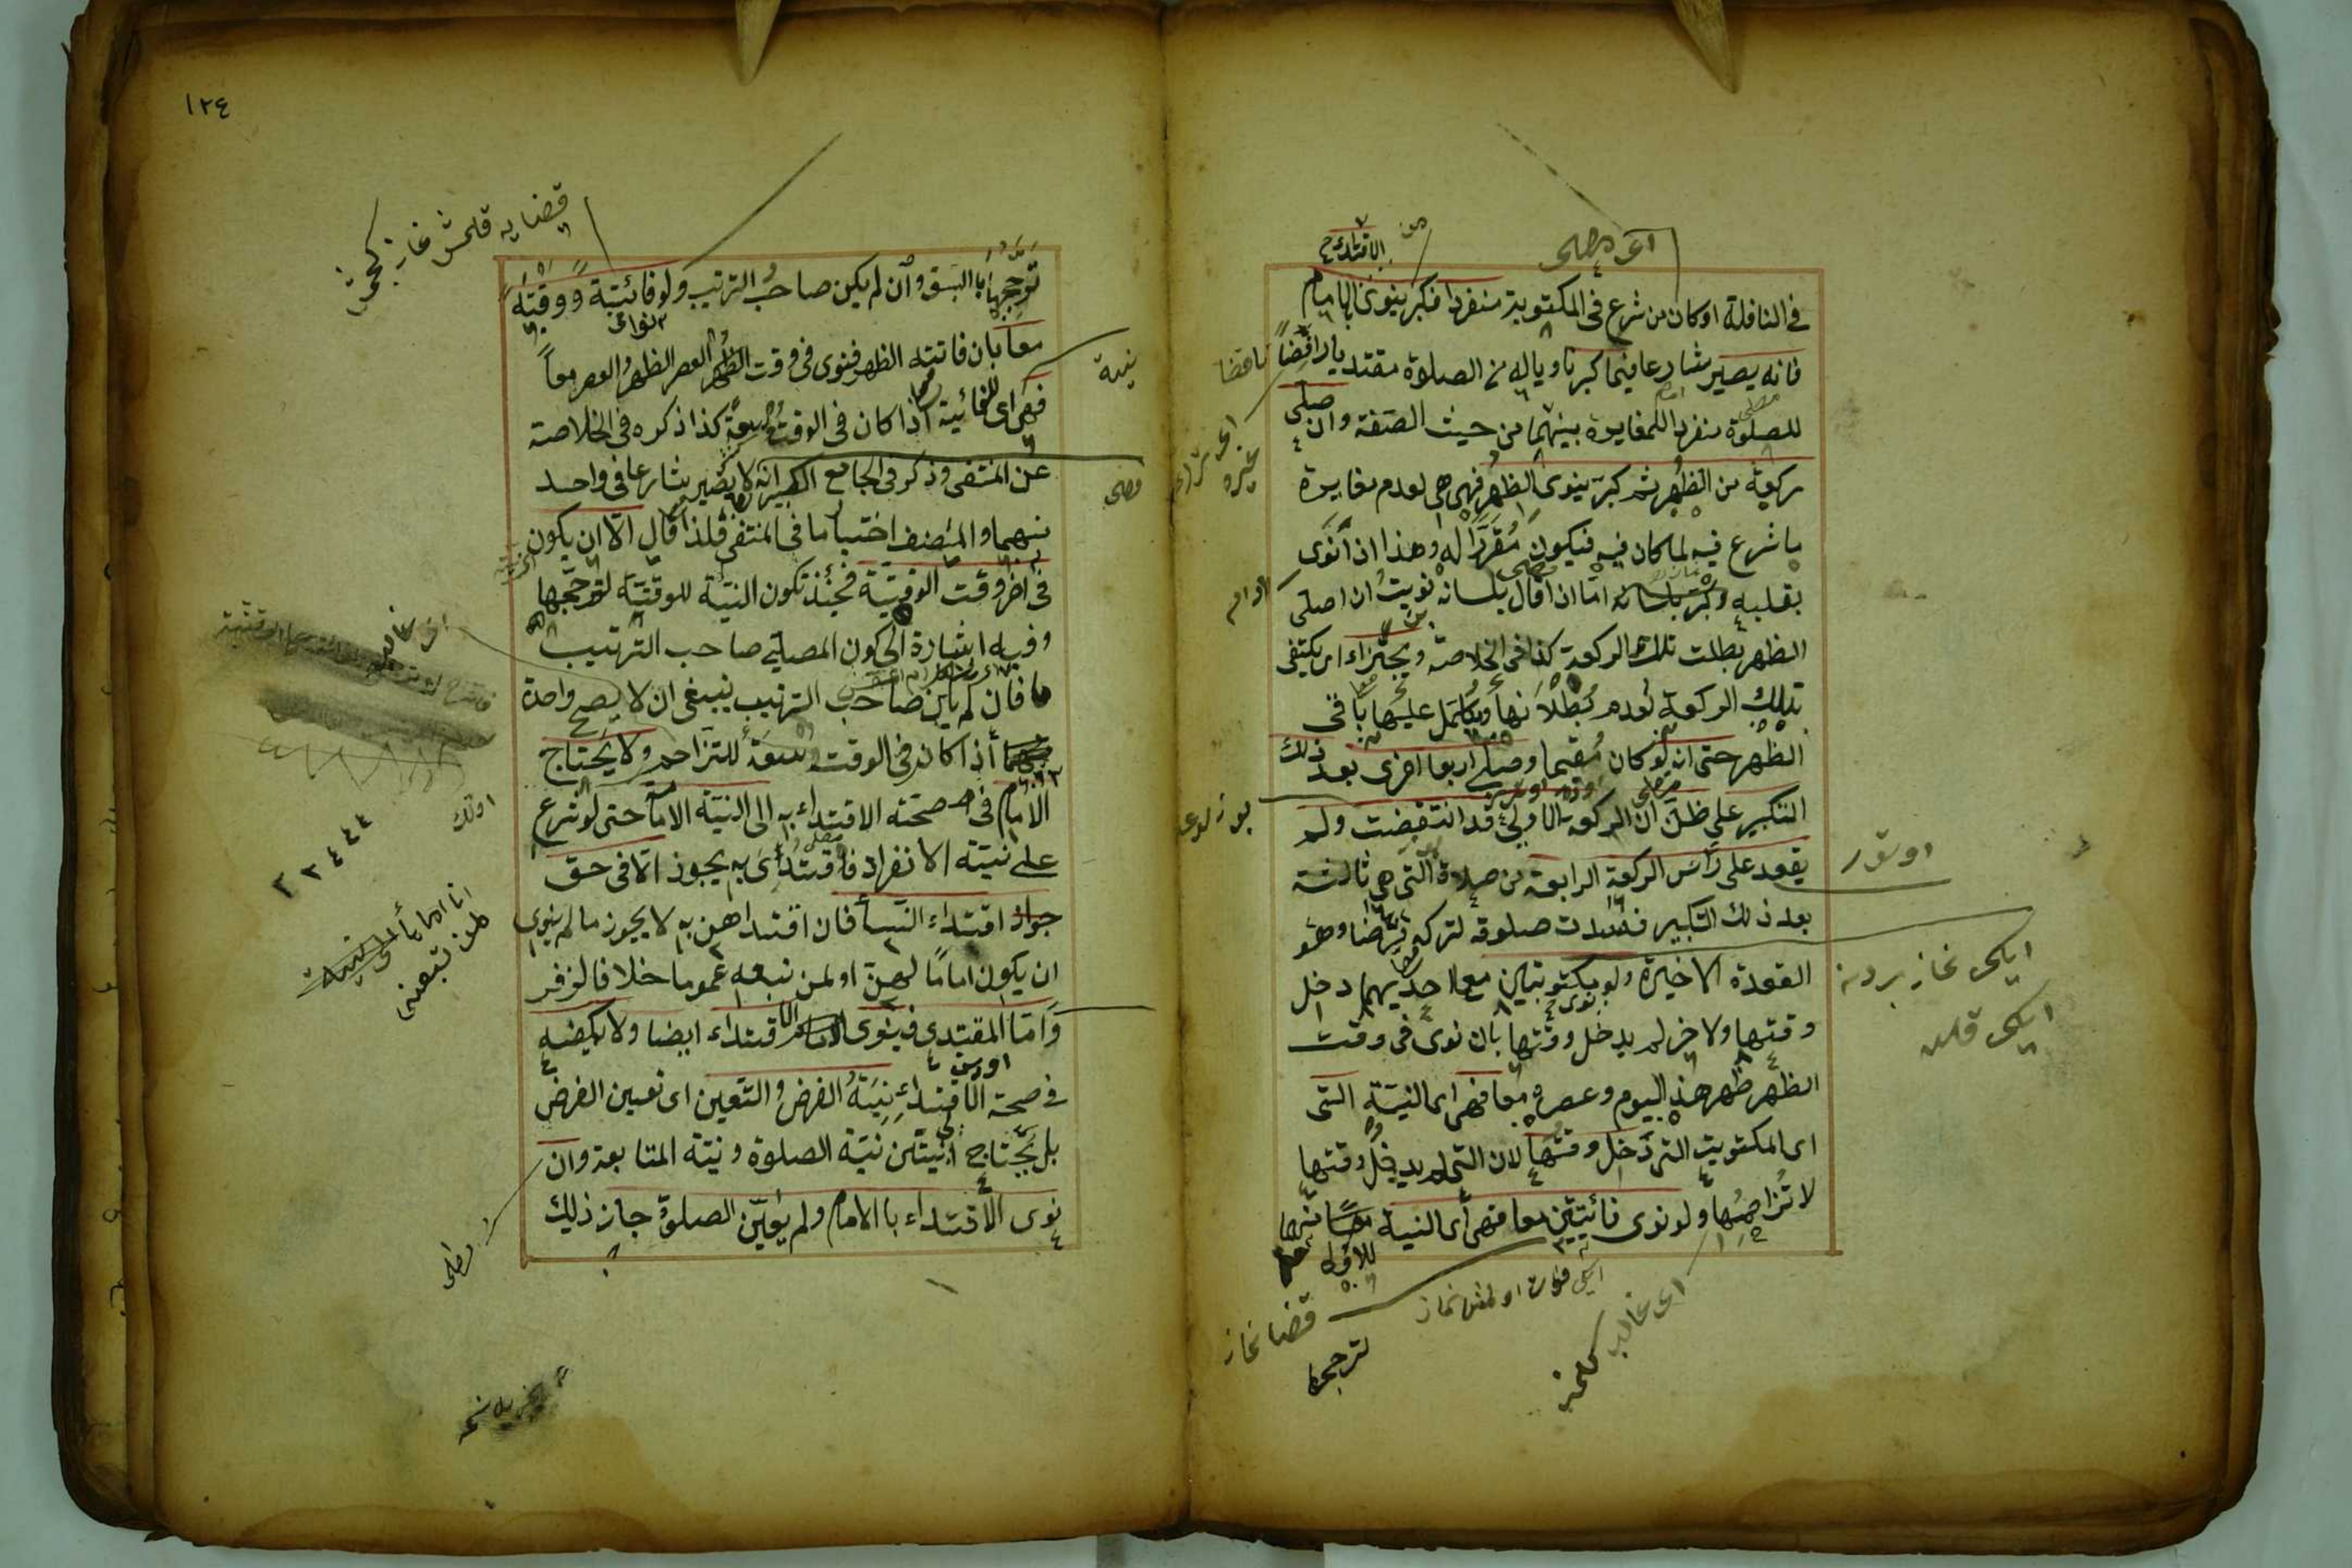 في النافلة او كان من شرع في المكتوبة منفردا فكبر ينوى الامام
فانه يصير شارعا فيما كبر ناويا له من الصلوة مقتديا رافضا
للصلوة منفردا للمغايرة بينهما من حيث الصفة وان صلى
ركعة من الظهر ثم كبر ينوى الظهر فهى هى لعدم مغايرة
ما شرع فيه لما كان فيه فيكون مقررا له وهذا اذا نوى
بقلبه وكبر بلسانه اما ان قال بلسانه نويت ان اصلى
الظهر بطلت تلك الركعة كذا في الخلاصة ويجتزاء اى يكتفى
بتلك الركعة لعدم بطلانها ويكمل عليها باقى
الظهر حتى انه لو كان مقيما وصلى اربعا اخرى بعد ذلك
التكبير على ظن ان الركعة الاولى قد انتقضت ولم
يقعد على رأس الركعة الرابعة من صلاة التى هى ثالثة
بعد ذلك التكبير فسدت صلوته لتركه فرضا وهو
القعدة الاخيرة ولو مكتوبتين معا احديهما دخل
وقتها والاخر لم يدخل وقتها بان نوى فى وقت
الظهر ظهر هذا اليوم وعصره معا فهى اى النية التى
اى المكتوبة التى دخل وقتها لان التى لم يدخل وقتها
لا تزاحمها ولو نوى فائتتين معا فهى اى النية منهما
للاولى
لترجحها
الاقتداء
اى مصلى
ناقضا
اوتور
ايكى نماز بردنه
ايكى قلسه
قضا نماز
اى غالب كلمز
١٢٤
قضايه قلمش نماز كجمش
ترجحها بالسبق وان لم يكن صاحب الترتيب ولو فائتة ووقتية
معا بان فاتته الظهر فنوى فى وقت العصر الظهر والعصر معا
فهى اى للفائتة اذا كان فى الوقت سعة كذا ذكره فى الخلاصة
عن المنتقى وذكر فى الجامع الكبير انه لا يصير شارعا فى واحد
منهما والمصنف اختار ما فى المنتقى فلذا قال الا ان يكون
فى اخر وقت الوقتية فحينئذ تكون النية للوقتية لترجحها
وفيه اشارة الى كون المصلى صاحب الترتيب
فان لم يكن صاحب الترتيب ينبغى ان لا يصح واحدة
منهما اذا كان فى الوقت سعة للتزاحم ولا يحتاج
الامام فى صحته الاقتداء به الى النية الامامة حتى لو شرع
على نية الانفراد فاقتدى به يجوز الا فى حق
جواز اقتداء النسأ فان اقتداهن به لا يجوز ما لم ينوى
ان يكون اماما لهن او لمن تبعه عموما خلافا لزفر
واما المقتدى فينوى الاقتداء ايضا ولا يكفيه
فى صحة الاقتداء نية الفرض والتعين اى تعيين الفرض
بل يحتاج الى نيتين نية الصلوة ونية المتابعة وان
نوى الاقتداء بالامام ولم يعين الصلوة جاز ذلك
نية
انا امام
لمن تبعنى
٢ ٢ ٤ ٤ ٤